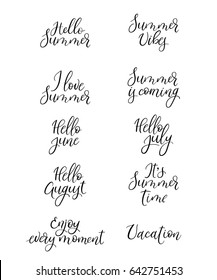 Hello
Summer
Summer
Vibes
I love
Summer
Summer
is coming
Hello
june
Hello
july
Hello
August
It's
Summer
Time
Enjoy
every moment
Vacation
shutterstock.com · 642751453